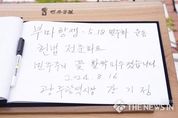 부마항쟁 - 5.18 민주화 운동
헌법 전문수록
민주주의 꽃 활짝 피우겠습니다
2024. 8. 16
광주광역시장 강기정
THEFACT